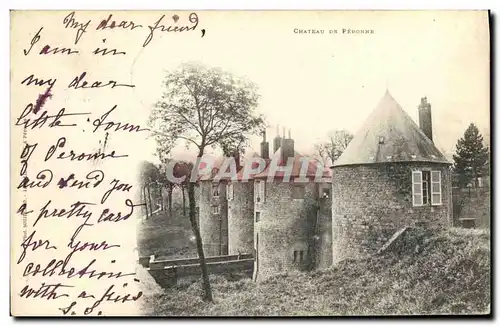 CHATEAU DE PÉRONNE
My dear friend,
I am in
my dear
little town
of Peronne
and send you
a pretty card
for your
collection
with a kiss
S. S.